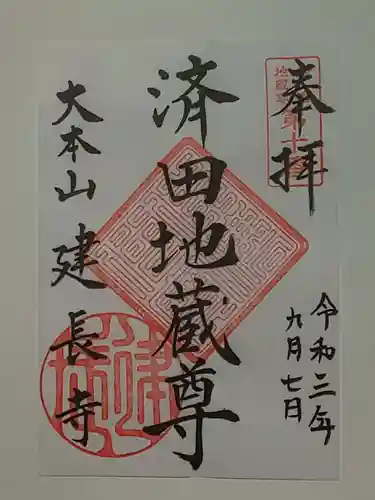 奉拝
令和三年
九月七日
済田地蔵尊
大本山建長寺